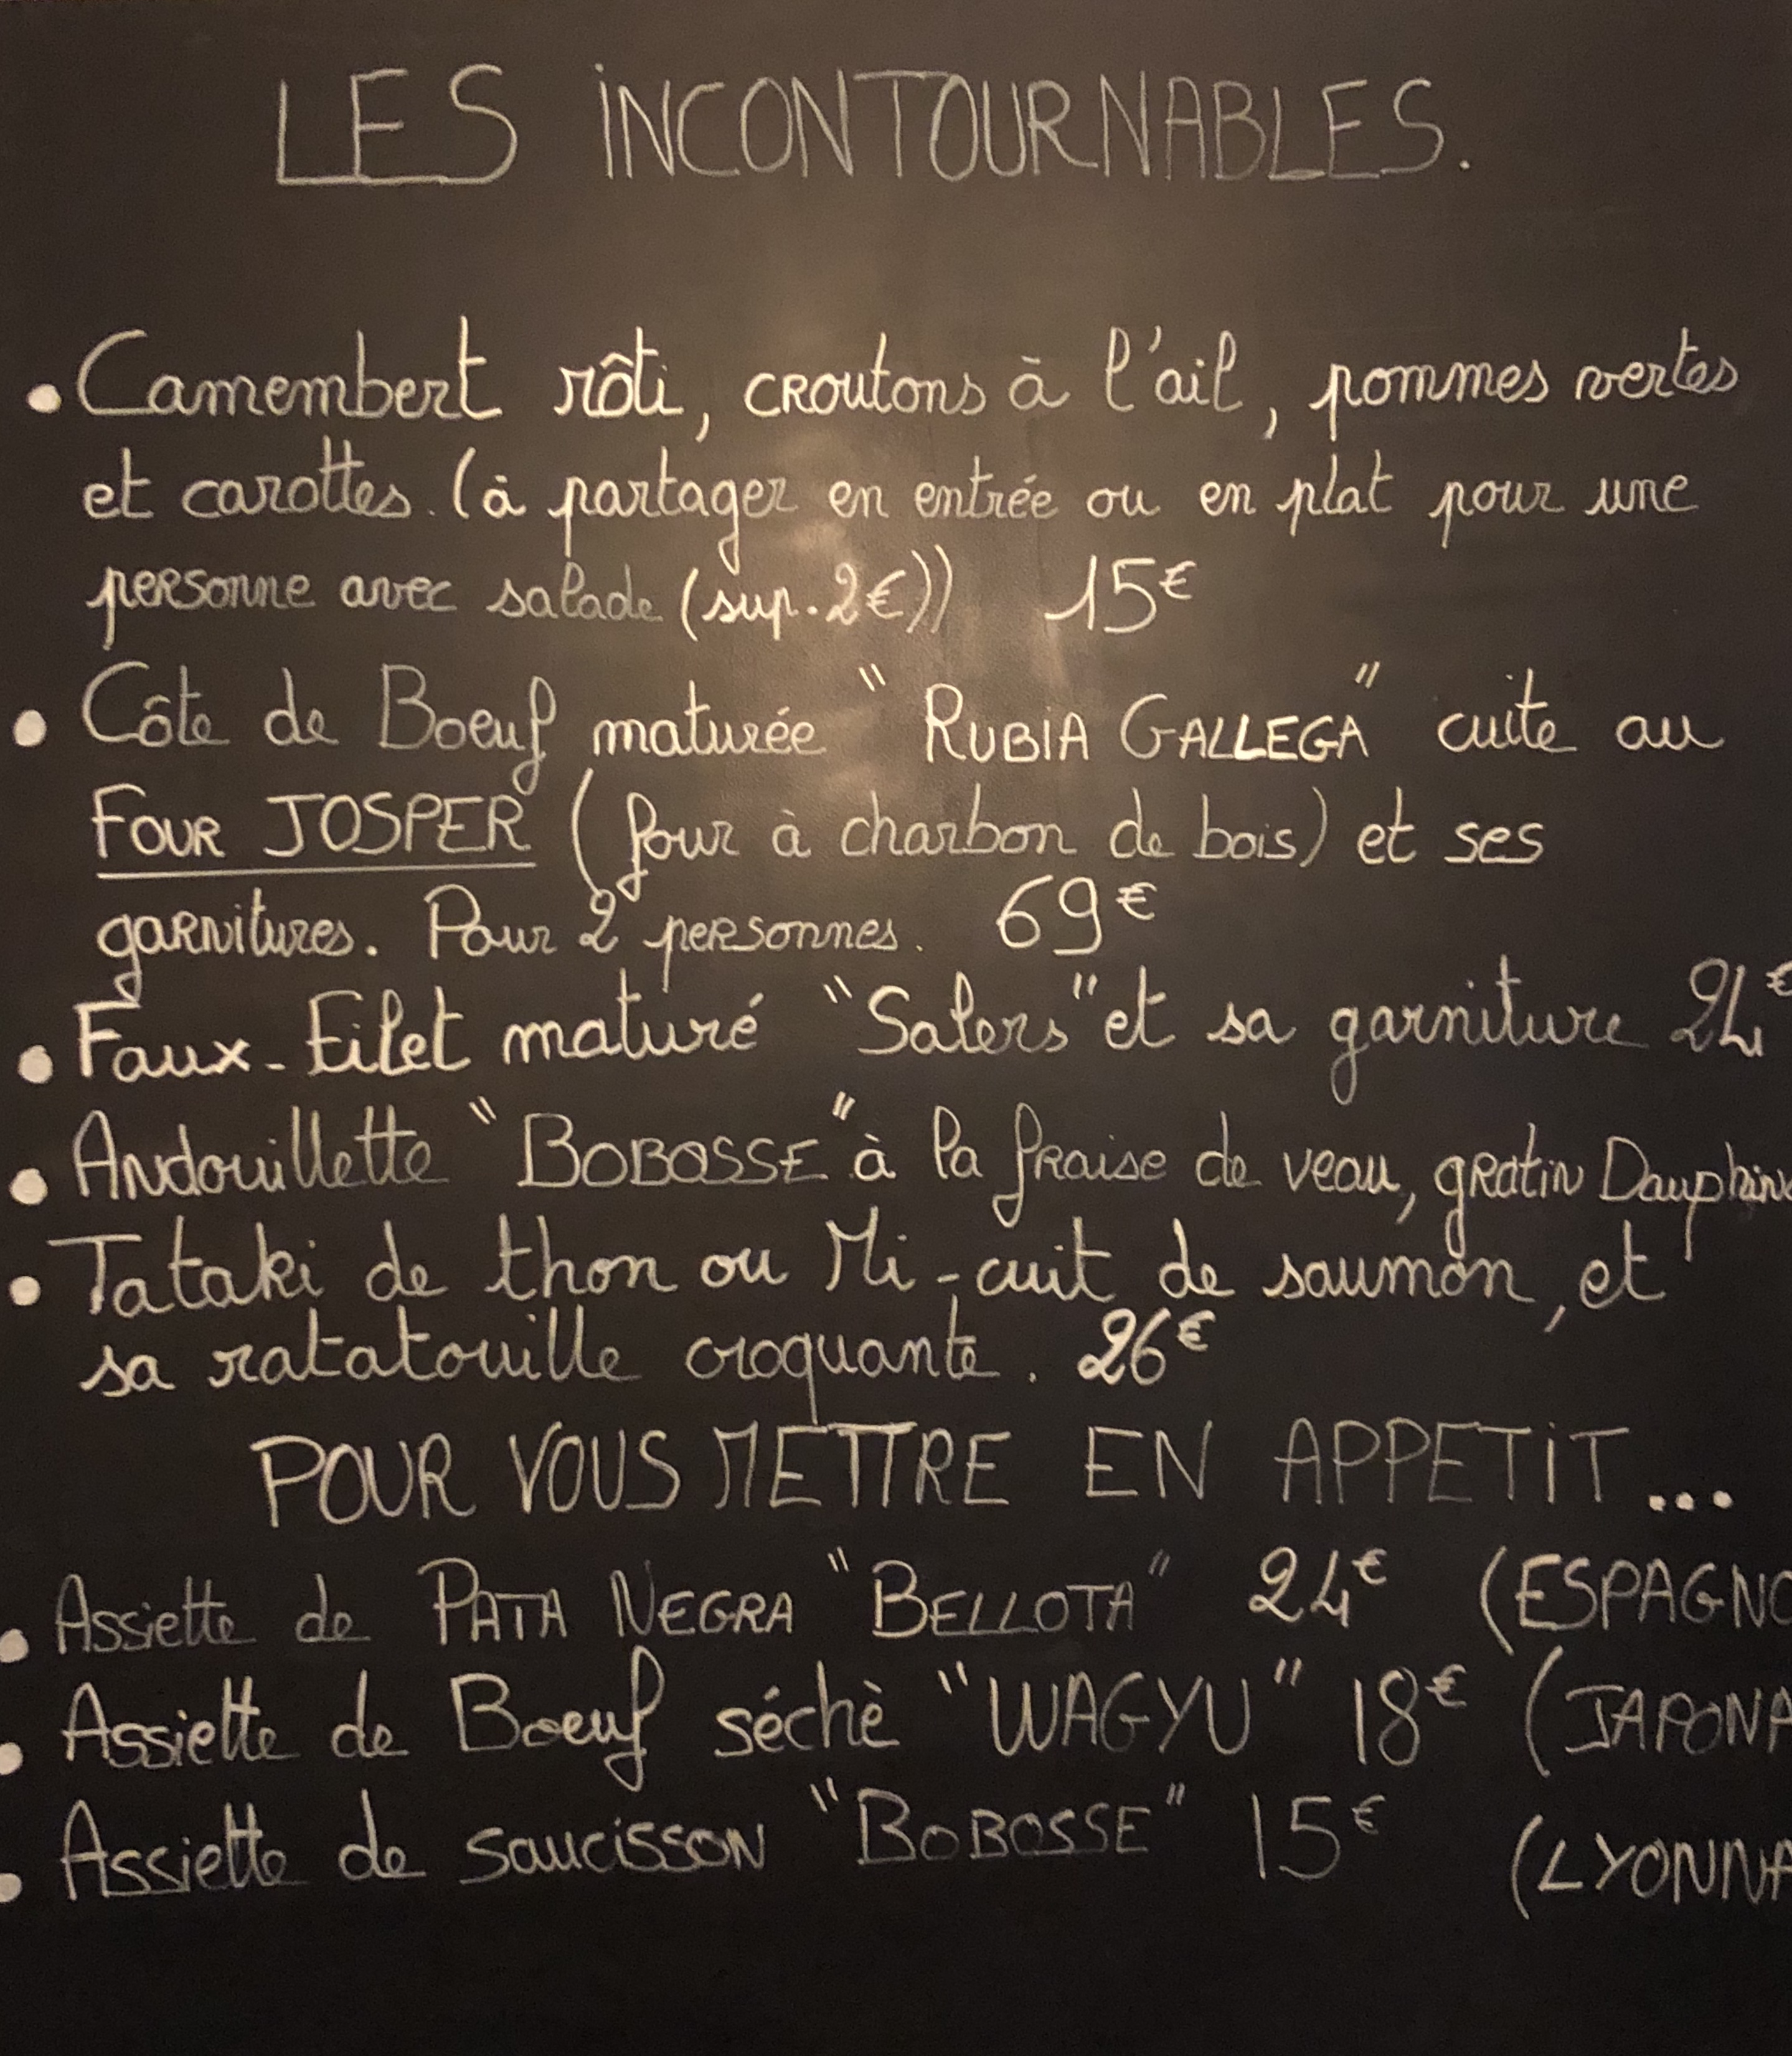 LES INCONTOURNABLES.
• Camembert rôti, croutons à l'ail, pommes vertes
et carottes. (à partager en entrée ou en plat pour une
personne avec salade (sup. 2€)) 15€
• Côte de Boeuf maturée "RUBIA GALLEGA" cuite au
FOUR JOSPER (four à charbon de bois) et ses
garnitures. Pour 2 personnes. 69€
• Faux-Filet maturé "Salers" et sa garniture 24€
• Andouillette "BOBOSSE" à la fraise de veau, gratin
• Tataki de thon ou Mi-cuit de saumon, et
sa ratatouille croquante. 26€
POUR VOUS METTRE EN APPETIT...
• Assiette de PATA NEGRA "BELLOTA" 24€
• Assiette de Boeuf séchè "WAGYU" 18€
• Assiette de saucisson "BOBOSSE" 15€